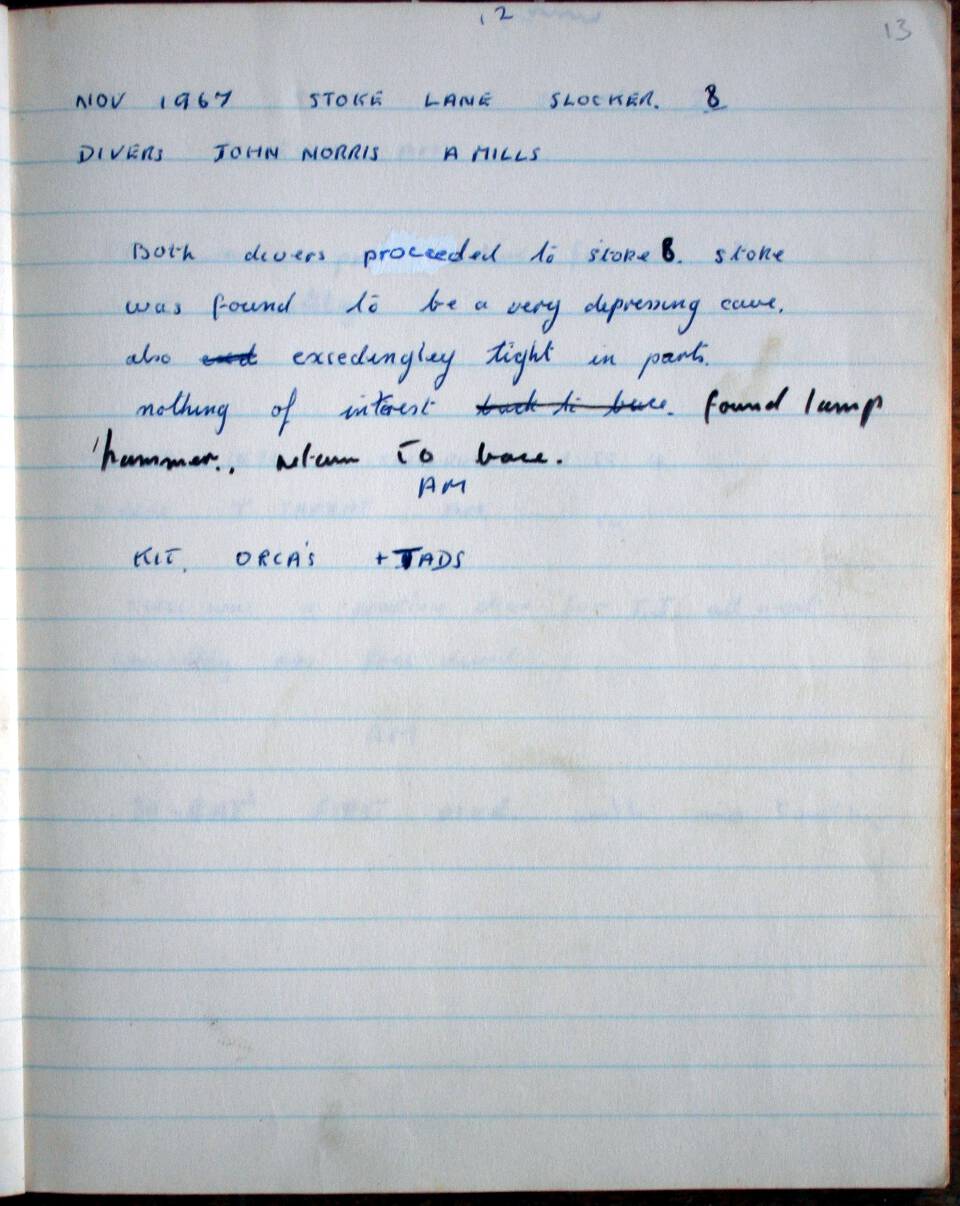 12
13
NOV 1967 STOKE LANE SLOCKER. 8
DIVERS JOHN NORRIS A MILLS
Both divers proceeded to stoke 8. stoke
was found to be a very depressing cave.
also and excedingley tight in parts.
nothing of interest back to base. found lump
hammer., return To base.
AM
KIT. ORCA'S + TADS